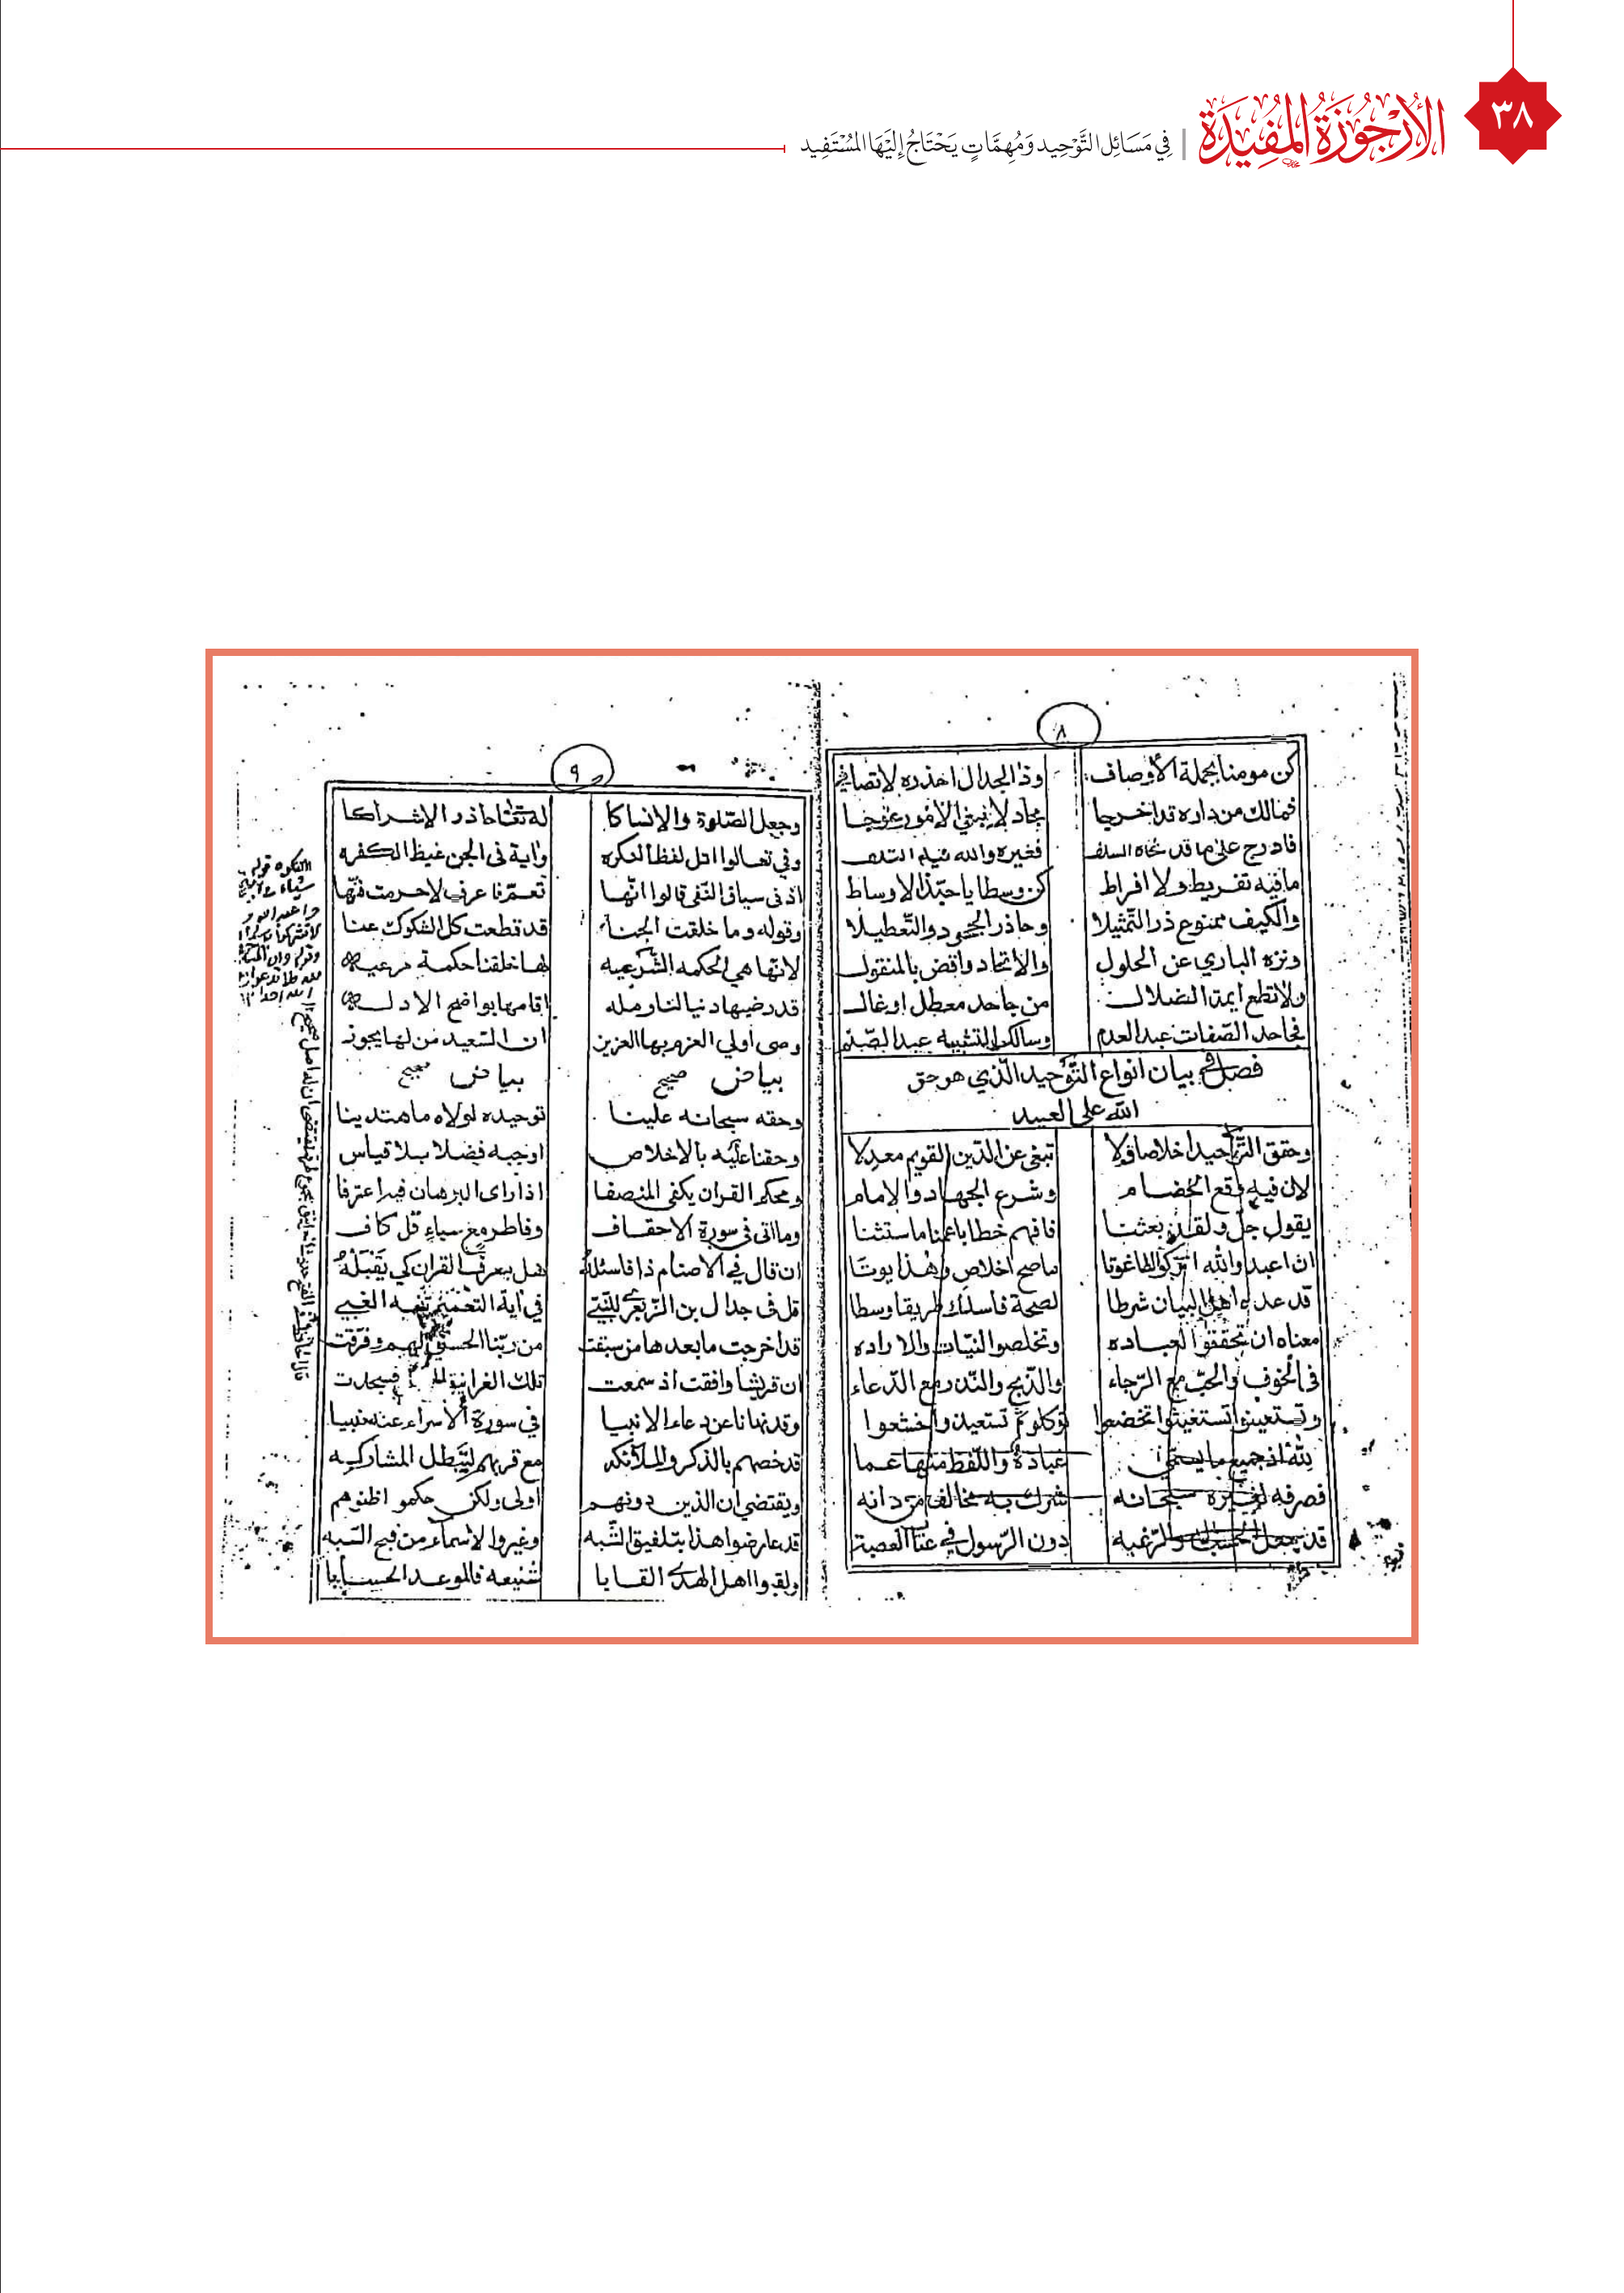 ٣٨
الأُرْجُوزَةُ المُفِيدَة | فِي مَسَائِل التَّوْحِيد وَمُهِمَّاتٍ يَحْتَاجُ إِلَيْهَا المُسْتَفِيد
٨
كن مومنا بجملة الأوصاف وذا الجدال احذره لا تصافي
فمالك من داره قد اخرجا مجادلا يبتغي الامور عوجا
فادرج على ما قد نحاه السلف فغيره والله فيه التلف
ما فيه تفريط ولا افراط كن وسطا يا حبّذا الاوساط
والكيف ممنوع ذر التّمثيلا وحاذر الجحود والتّعطيلا
ونزه الباري عن الحلول والاتحاد واقض بالمنقول
ولا تطع ايمة الضلال من جاحد معطل او غال
فجاحد الصّفات عبد العدم وسالك التشبيه عبد الصّنم
فصل في بيان انواع التّوحيد الّذي هو حق
الله على العبيد
وحقق التّوحيد اخلاصا فلا تبغي عن الدّين القويم معدلا
لان فيه وقع الخصام وشرع الجهاد والامام
يقول جل ولقد بعثنا فافهم خطابا عمنا ما ستثنا
ان اعبدوا الله اتركوا الطاغوتا ما صح اخلاص وهذا يوتا
قد عده اهل البيان شرطا لصحة فاسلك طريقا وسطا
معناه ان تحققوا العباده وتخلصوا النيّات والاراده
في الخوف والحبّ مع الرّجاء والذّبح والنّذر مع الدّعاء
وتستعينوا تستغيثوا تخضعوا توكلوا تستعيذوا خشعوا
لله اذ جميع ما يسمى عبادة واللّفظ منها عما
فصرفه لغيره سبحانه شرك به مخالف من دانه
قد يجعل الحسب له والرّغبه دون الرّسول في
٩
وجعل الصّلوة والإنساكا له تقتا حاذر الإشراكا
وفي تعالوا اتل لفظ النكره واية في الجن غيظ الكفره
اذ في سياق النّفي قالوا انّها تعمّ
وقوله وما خلقت الجنا قد قطعت كل الشكوك عنا
لانّها هي الحكمه الشّرعيه لها خلقنا حكمة مرعيه
قد رضيها دنيا لنا ومله اقامها بواضح الادله
وصى أولي العزم بها العزيز ان السّعيد من لها يجوز
بياض صحيح بياض صحيح
وحقه سبحانه علينا توحيده لولاه ما هتدينا
وحقنا عليه بالاخلاص اوجبه فضلا بلا قياس
ومحكم القران يكفي المنصفا اذا راى البرهان فيه اعترفا
وما اتى في سورة الاحقاف وفاطر مع سباء قل كاف
ان قال في الاصنام ذا فاسئله هل يعرف القران كي يقبله
قل في جدال بن الزّبعرى للنّبي في اية
قد اخرجت ما بعدها من سبقت من ربّنا الحسنى لهم وفرّقت
ان قريشا وافقت اذ سمعت تلك الغرانيق فسجدت
وقد نهانا عن دعاء الانبيا في سورة الأسراء عنه نبيا
قد خصهم بالذكر والملائكه مع قربهم ليبطل المشاركه
ويقتضي ان الذين دونهم اولى ولكن حكموا ظنوهم
قد عارضوا هذا بتلفيق الشّبه وغيروا الاسماء من قبح السّبه
ولقبوا اهل الهدى القابا شنيعه فالموعد الحسابا